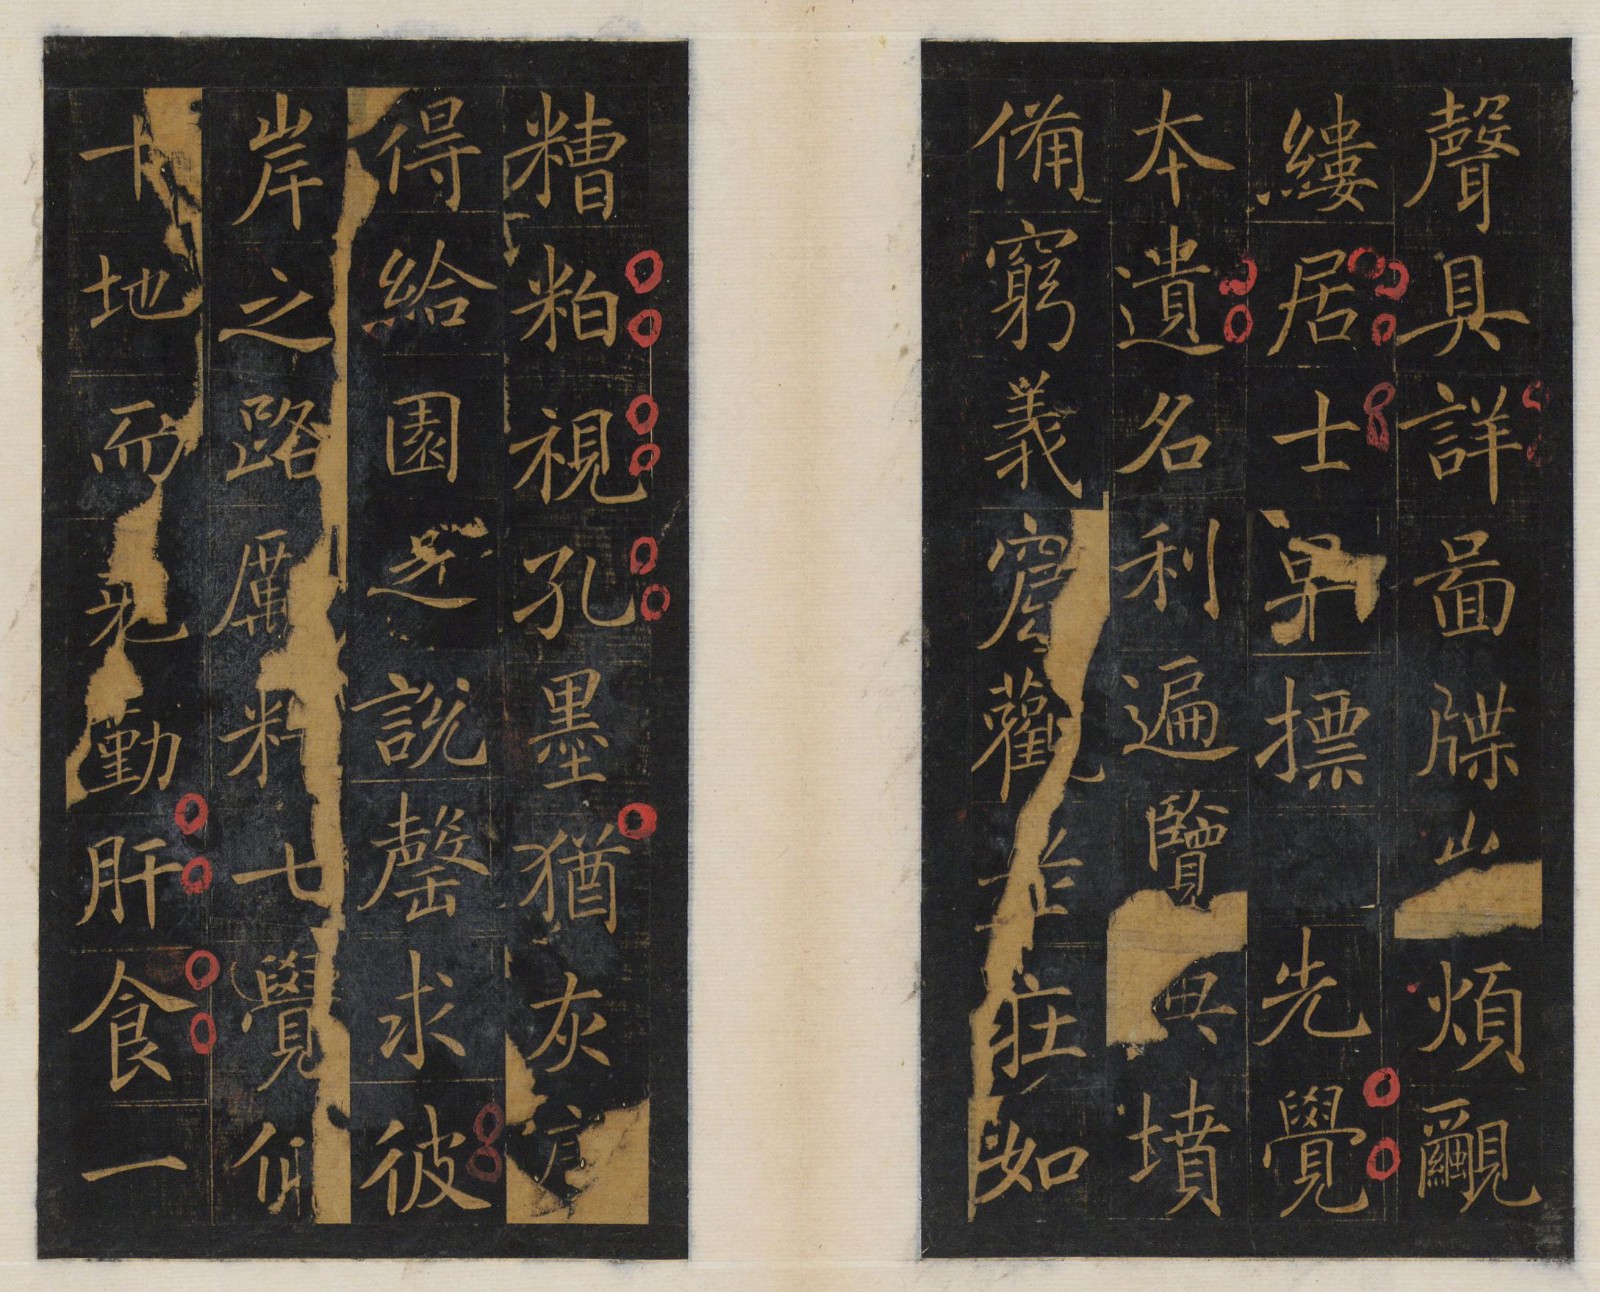 聲具詳啚牒煩覼
縷居士標先覺
本遺名利遍覽典墳
備窮義窟觀莊如
糟粕視孔墨猶灰
得給園之說罄求彼
岸之路厲精七覺仰
十地而克勤肝食一